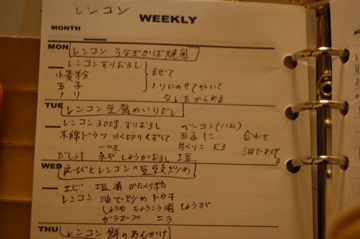 レンコン
WEEKLY
MONTH
MON
レンコン うなぎかば焼風
レンコンすりおろし
小麦粉 まぜて
玉子 ノリにのせてやいて
ノリ たれをからめる
TUE
レンコン豆腐のいりだし
レンコン300g すりおろし
木綿ドウフ 水切りくずして
合わせて
油であげ
だし汁 ネギ しょうがおろし
WED
えびとレンコンの豆豉炒め
エビ 塩 酒 かたくり粉
レンコン 油で炒め トウチ
しょうゆ しょうこう酒 しょうが
ガラスープ ニラ
THU
レンコン餅のあんかけ